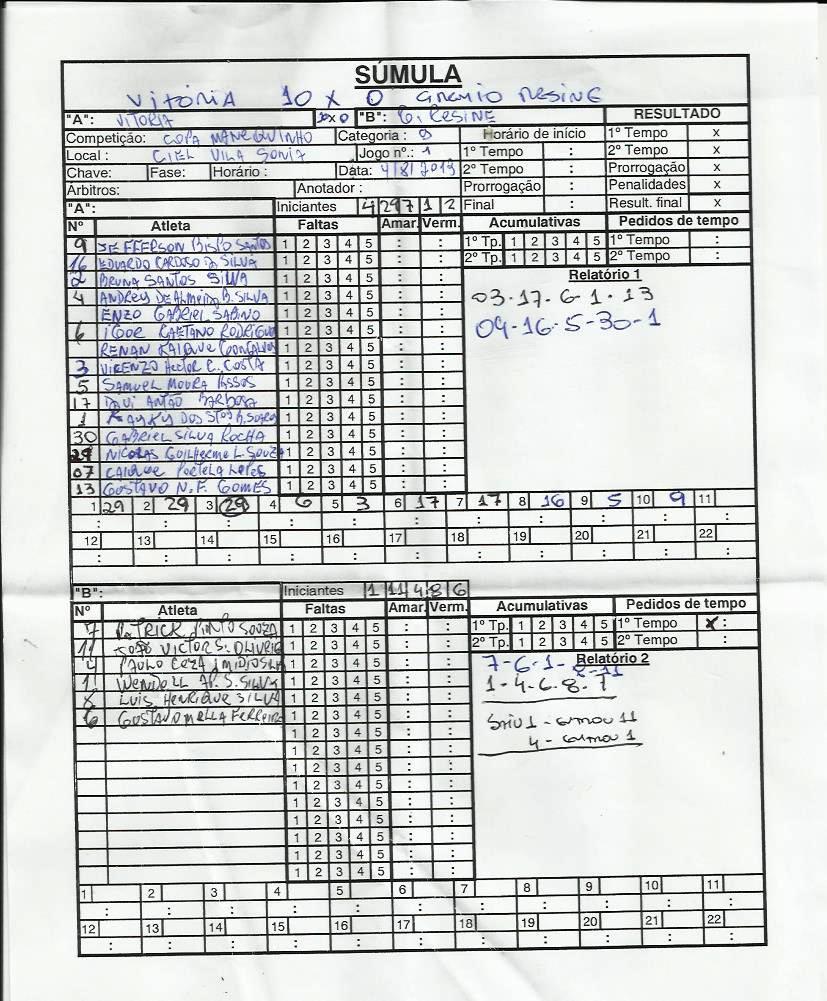 SÚMULA
VITÓRIA 10 X 0 GREMIO RESINE
"A": VITORIA 10x0 "B": G. RESINE RESULTADO
Competição: COPA MANEQUINHO Categoria : 8 Horário de início 1º Tempo x
Local : CIEL VILA SONIA Jogo nº.: 1 1º Tempo : 2º Tempo x
Chave: Fase: Horário : Data: 4/8/2013 2º Tempo : Prorrogação x
Árbitros: Anotador : Prorrogação : Penalidades x
"A": Iniciantes 4 29 7 1 2 Final : Result. final x
Nº Atleta Faltas Amar. Verm. Acumulativas Pedidos de tempo
9 JEFFERSON BISPO SANTOS 1 2 3 4 5 : : 1º Tp. 1 2 3 4 5 1º Tempo :
16 EDUARDO CARDOSO D. SILVA 1 2 3 4 5 : : 2º Tp. 1 2 3 4 5 2º Tempo :
2 BRUNA SANTOS SILVA 1 2 3 4 5 : : Relatório 1
4 ANDREY DE ALMEIDA B. SILVA 1 2 3 4 5 : : 03-17-6-1-13
ENZO GABRIEL SABINO 1 2 3 4 5 : :
6 IGOR CAETANO RODRIGUE 1 2 3 4 5 : : 09-16-5-30-1
RENAN KAIQUE GONÇALVES 1 2 3 4 5 : :
3 VICENZO HECTOR C. COSTA 1 2 3 4 5 : :
5 SAMUEL MOURA PASSOS 1 2 3 4 5 : :
17 DAVI ANTÃO BARBOSA 1 2 3 4 5 : :
1 KAYKY DOS STOS B. SOARES 1 2 3 4 5 : :
30 GABRIEL SILVA ROCHA 1 2 3 4 5 : :
29 NICOLAS GUILHERME L. SOUZA 1 2 3 4 5 : :
07 CAIQUE PORTELA LOPES 1 2 3 4 5 : :
13 GUSTAVO N. F. GOMES 1 2 3 4 5 : :
1 29 2 29 3 29 4 6 5 3 6 17 7 17 8 16 9 5 10 9 11
: : : : : : : : : : :
12 13 14 15 16 17 18 19 20 21 22
: : : : : : : : : : :
"B": Iniciantes 1 11 4 8 6
Nº Atleta Faltas Amar. Verm. Acumulativas Pedidos de tempo
7 PATRICK PINTO SOUZA 1 2 3 4 5 : : 1º Tp. 1 2 3 4 5 1º Tempo x :
11 JOÃO VICTOR S. OLIVEIR 1 2 3 4 5 : : 2º Tp. 1 2 3 4 5 2º Tempo :
4 PAULO 1 2 3 4 5 : : 7-6-1-8-11 Relatório 2
1 WENDELL AP. S. SILVA 1 2 3 4 5 : : 1-4-6-8-7
8 LUIS HENRIQUE SILVA 1 2 3 4 5 : :
6 GUSTAVO MELLA FERREIRA 1 2 3 4 5 : : Saiu 1 - entrou 11
1 2 3 4 5 : : 4 - entrou 1
1 2 3 4 5 : :
1 2 3 4 5 : :
1 2 3 4 5 : :
1 2 3 4 5 : :
1 2 3 4 5 : :
1 2 3 4 5 : :
1 2 3 4 5 : :
1 2 3 4 5 : :
1 2 3 4 5 6 7 8 9 10 11
: : : : : : : : : : :
12 13 14 15 16 17 18 19 20 21 22
: : : : : : : : : : :